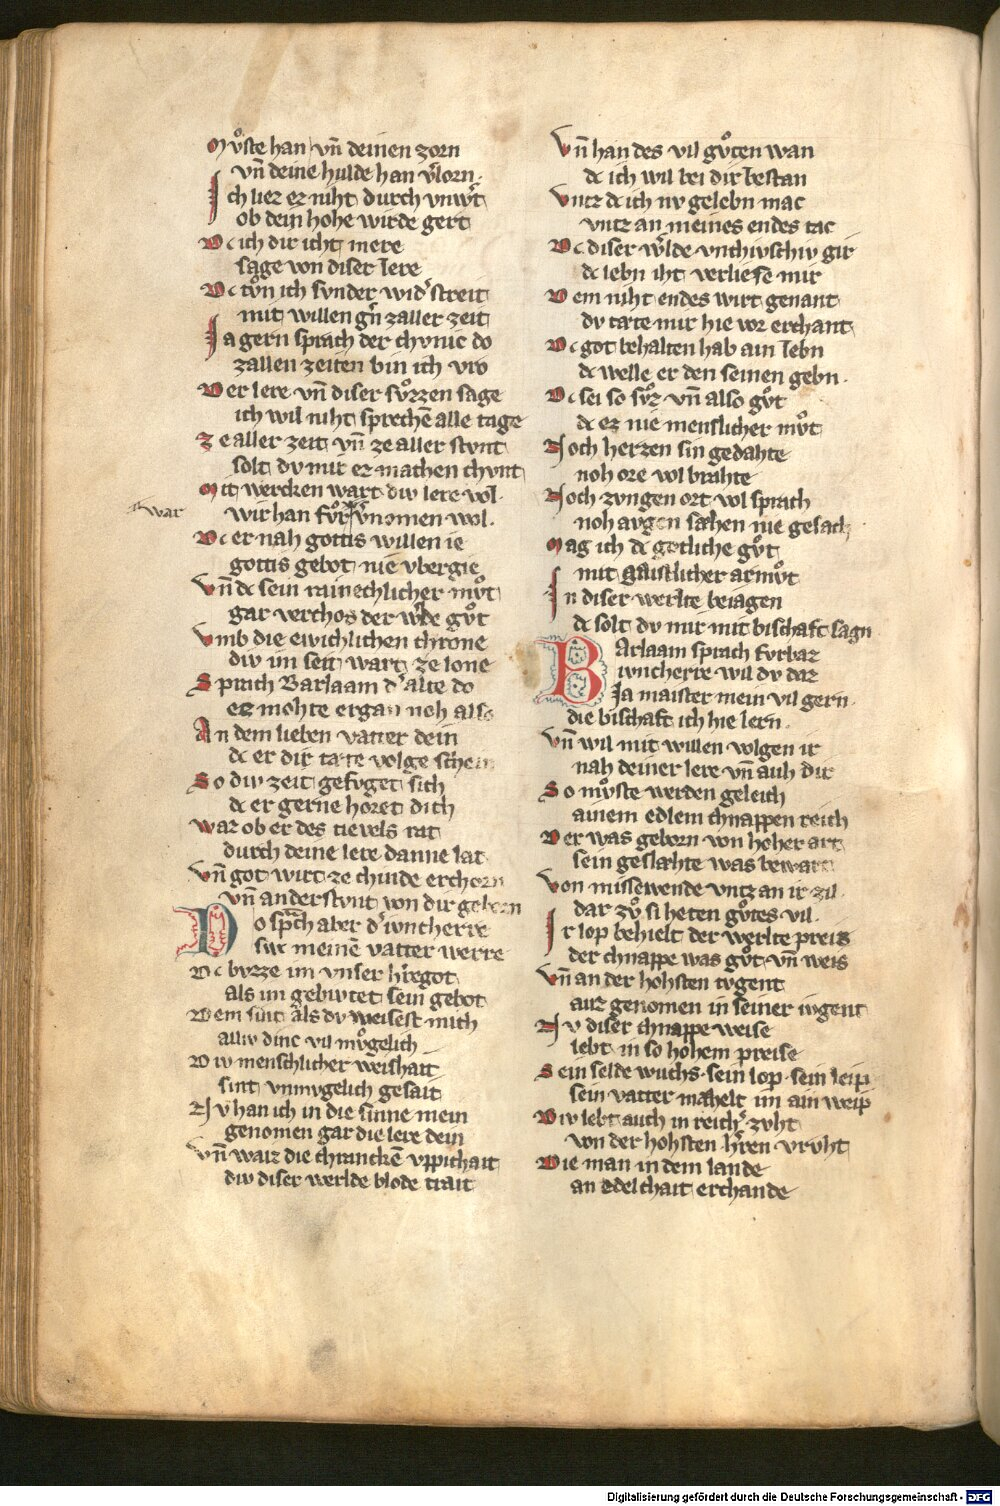 Mvͦste han vn̄ deinen zorn
vn̄ deine hulde han v̓lorn.
Ich liez ez niht durch vnw̓t
ob dein hohe wirde gert
Dc ich dir icht mere
sage von diser lere
Dc tvͦn ich svnder wid̓streit
mit willen gn̓ zaller zeit
Ja gern sprach der chvnic do
zallen zeiten bin ich vro
Der lere vn̄ diser svͦzzen sage
ich wil niht sprechē alle tage
Ze aller zeit vn̄ ze aller stvnt
solt dv mir ez machen chvnt
Mit wercken wart div lere vol.
war
wir han fvͦr v̓nomen wol.
Dc er nah gottis willen ie
gottis gebot nie vbergie
Vn̄ dc sein rainechlicher mvͦt
gar verchos der w̓lde gvͦt
Vmb die ewichlichen chrone
div im seit wart ze lone
Sprach Barlaam d̓ alte do
ez mohte ergan noh also
An dem lieben vatter dein
dc er dir tæte volge schein
So div zeit gefvget sich
dc er gerne horet dich
Waz ob er des tievels rat
durch deine lere danne lat
Vn̄ got wirt ze chinde erchorn
vn̄ anderstvnt von dir geborn
Do sprach aber d̓ ivncherre
swc meinē vatter werre
Dc bvzze im vnser h̓regot
als im gebivtet sein gebot
Dem sint als dv weisest mich
alliv dinc vil mvͦgelich
Div menschlicher weishait
sint vnmvgelich gesait
Nv han ich in die sinne mein
genomen gar die lere dein
Vn̄ waiz die chranckē vppichait
div diser werlde blode trait
Vn̄ han des vil gvͦten wan
dc ich wil bei dir bestan
Vntz dc ich nv gelebn mac
vntz an meines endes tac
Dc diser w̓lde vnchivschiv gir
dc lebn iht verliese mir
Dem niht endes wirt genant
dv tæte mir hie vor erchant
Dc got behalten hab ain lebn
dc welle er den seinen gebn.
Dc sei so svͦz vn̄ also gvͦt
dc ez nie menslicher mvͦt
Noch herzen sin gedahte
noh ore vol brahte
Noch zvngen ort vol sprach
noh avgen sæhen nie gesach
Mag ich dc gotliche gvͦt
mit gaistlicher armvͦt
In diser werlte beiagen
dc solt dv mir mit bischaft sagn
Barlaam sprach fvrbaz
ivncherre wil dv daz
Ja maister mein vil gern.
die bischaft ich hie lern.
Vn̄ wil mit willen volgen ir
nah deiner lere vn̄ auh dir
So mvͦste werden geleich
ainem edlem chnappen reich
Der was geborn von hoher art
sein geslæhte was bewart
Von missewende vntz an ir zil.
dar zvͦ si heten gvͦtes vil.
Ir lop behielt der werlte preis
der chnappe was gvͦt vn̄ weis
Vn̄ an der hohsten tvgent
auz genomen in seiner ivgent
Nv diser chnappe weise
lebt in so hohem preise
Sein selde wuchs. sein lop. sein leip
sein vatter mæhelt im ain weip
Div lebt auch in reich̓ zvht
von der hohsten h̓ren vrvht
Die man in dem lande
an edelchait erchande
Digitalisierung gefördert durch die Deutsche Forschungsgemeinschaft - DFG